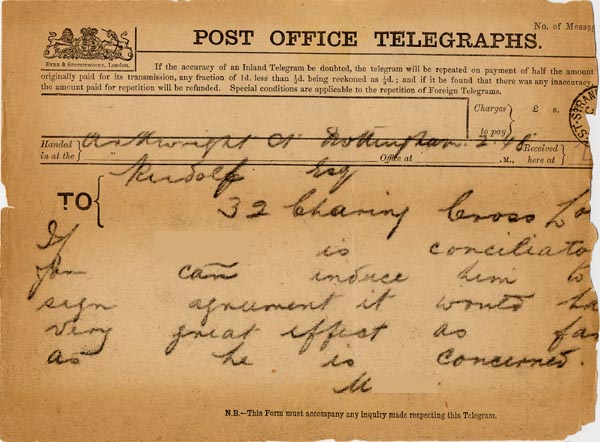 No. of Messag
POST OFFICE TELEGRAPHS.
EYRE & SPOTTISWOODE, London.
If the accuracy of an Inland Telegram be doubted, the telegram will be repeated on payment of half the amount
originally paid for its transmission, any fraction of 1d. less than ½d. being reckoned as ½d.; and if it be found that there was any inaccuracy,
the amount paid for repetition will be refunded. Special conditions are applicable to the repetition of Foreign Telegrams.
Charges to pay £ s.
Handed in at the Arkwright St Nottingham Office at 2.48 .M., Received here at
TO Esq
32 Charing Cross Lo
If is conciliato
you can induce him to
sign agreement it would ha
very great effect as far
as he is concerned.
M
N.B.—This Form must accompany any inquiry made respecting this Telegram.